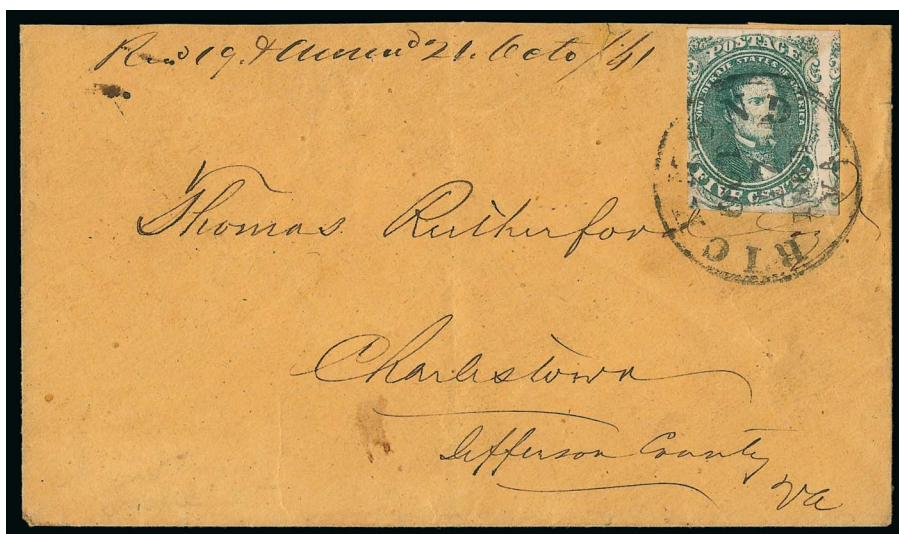 19. & 21. Octo/61
POSTAGE
CONFEDERATE STATES OF AMERICA
FIVE CENTS
RICHMOND VA
Thomas Rutherford
Charlestown
Jefferson County
Va